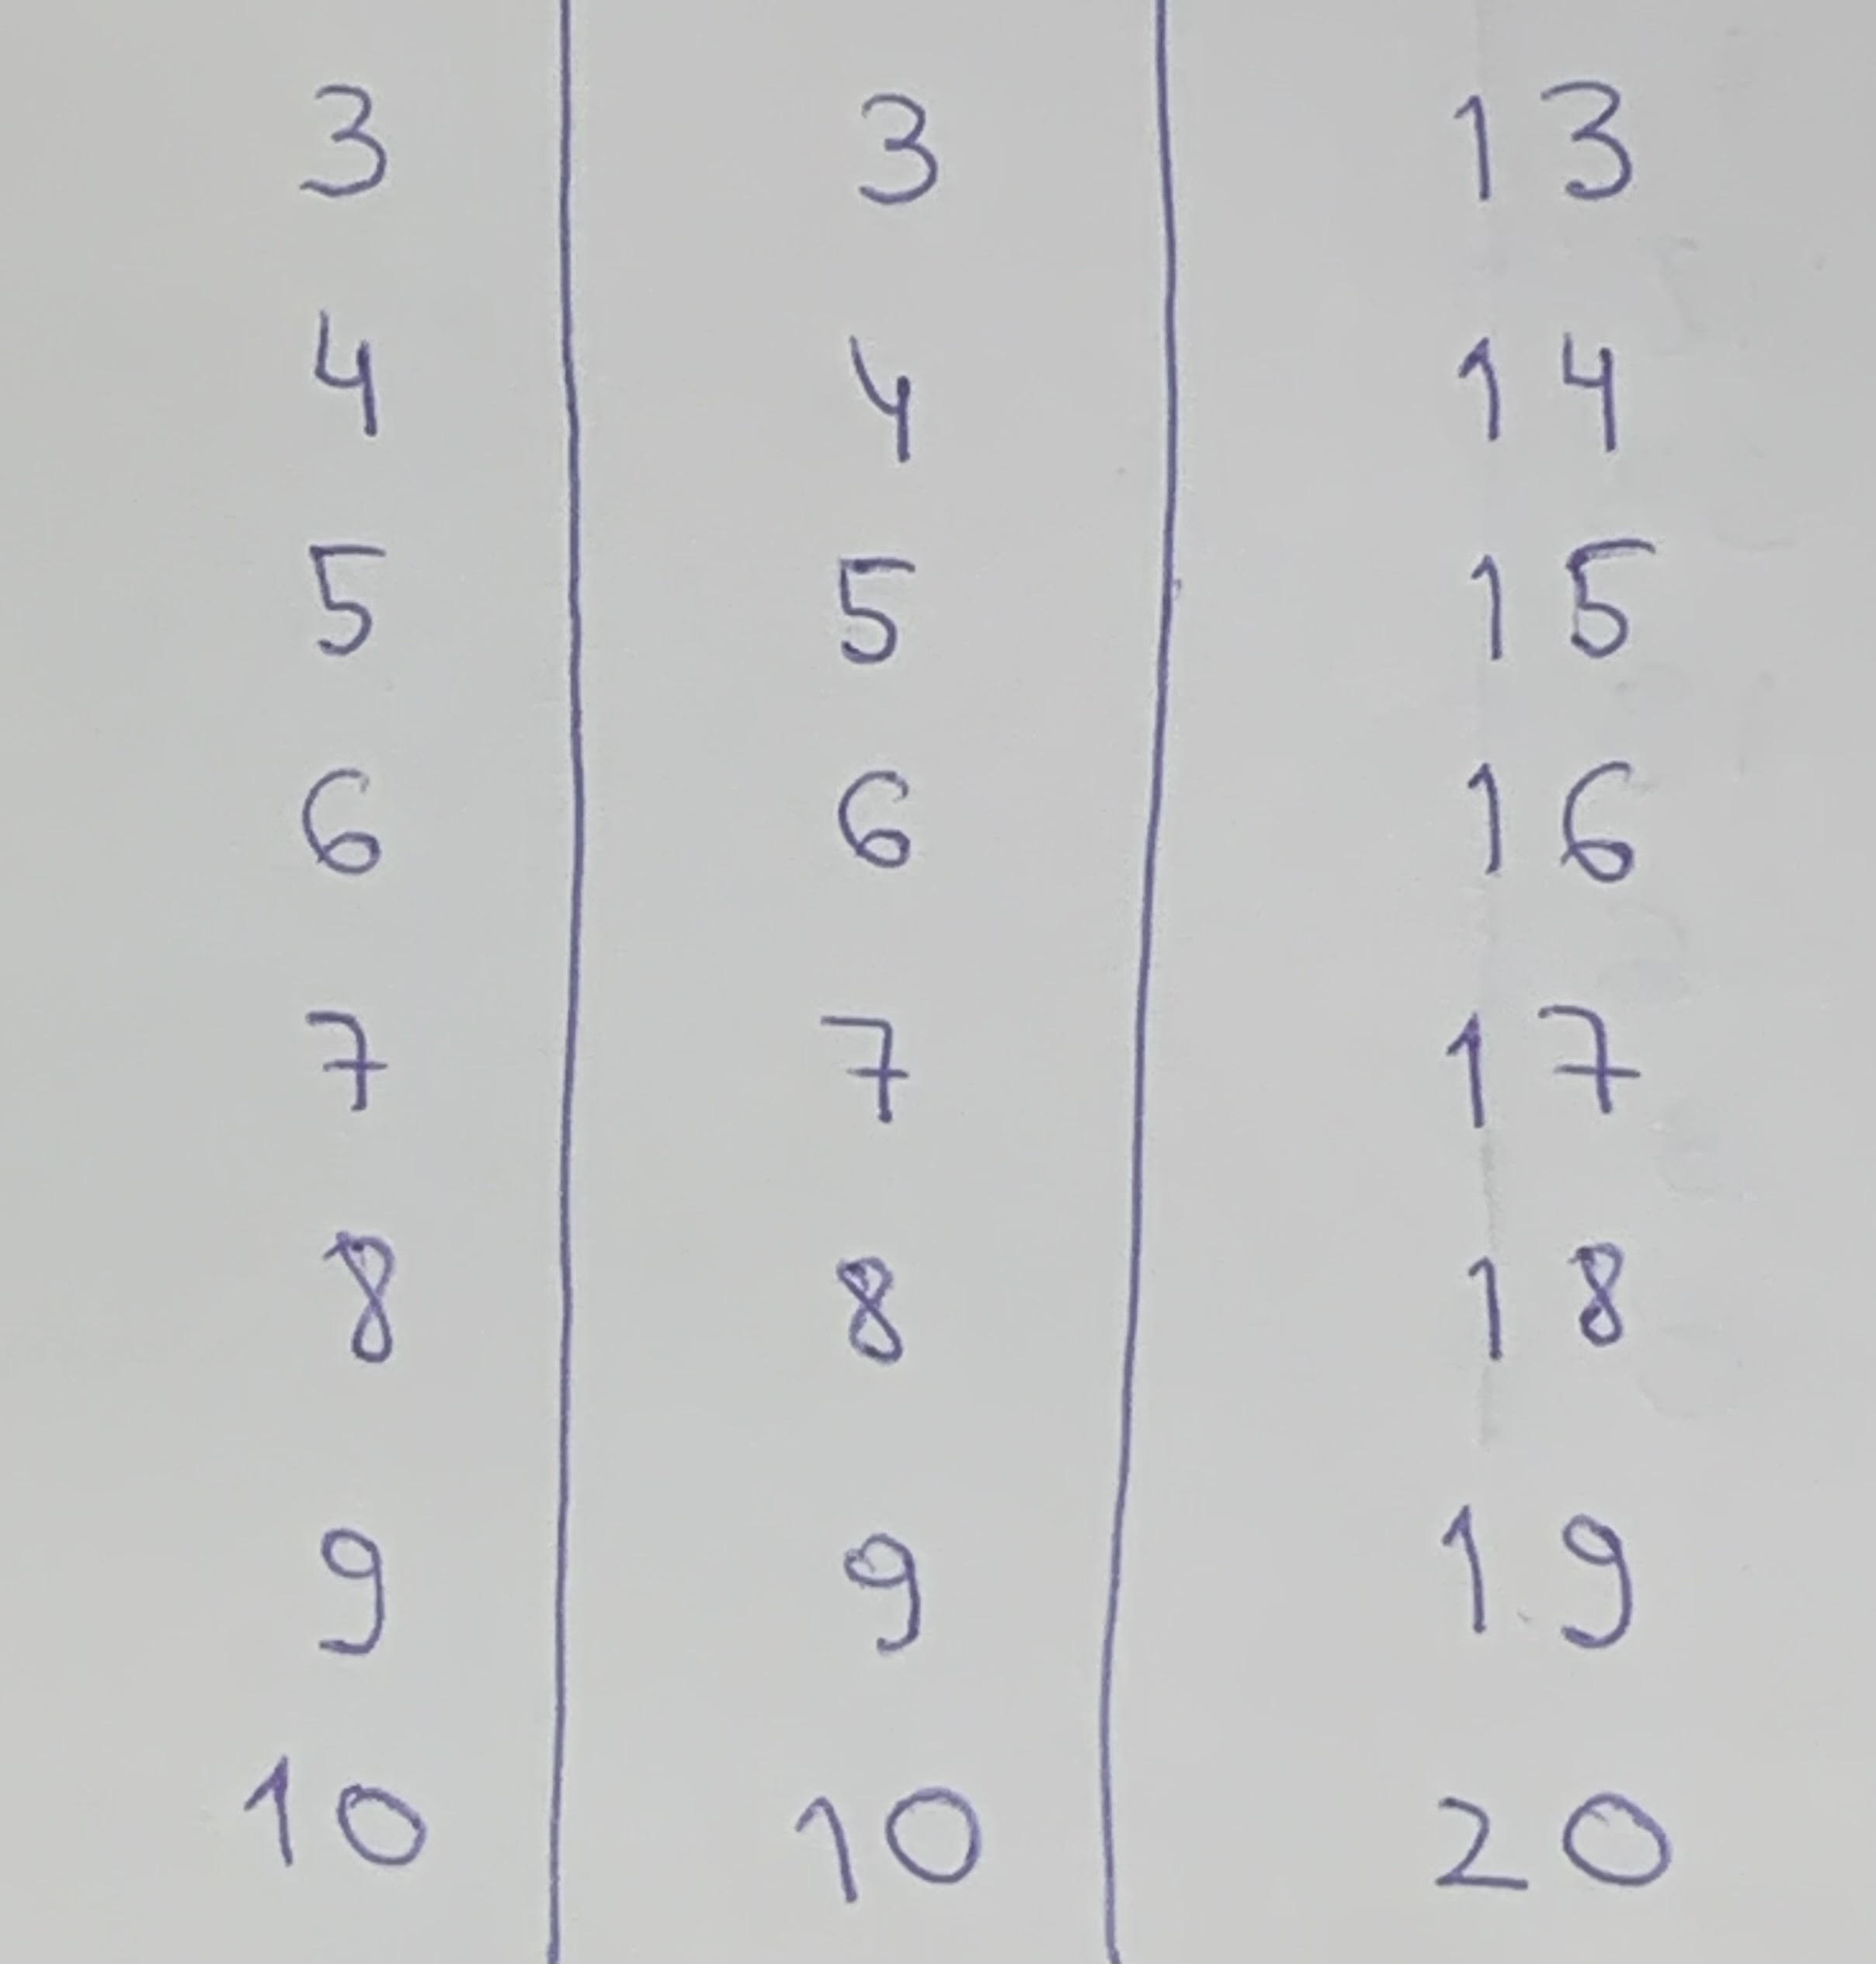 3 3 13
4 4 14
5 5 15
6 6 16
7 7 17
8 8 18
9 9 19
10 10 20